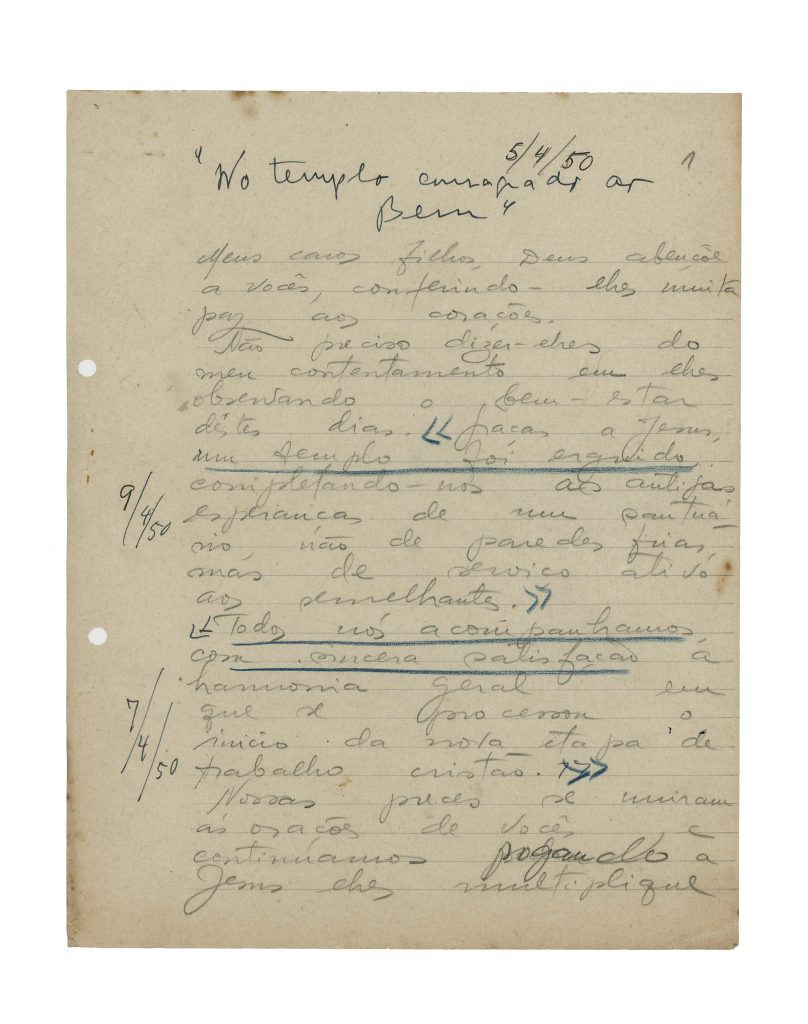 5/4/50
1
"No templo consagrado ao
Bem"
Meus caros filhos, Deus abençôe
a vocês, conferindo-lhes muita
paz aos corações.
Não preciso dizer-lhes do
meu contentamento em lhes
observando o bem-estar
dêstes dias. << Graças a Jesus,
um templo foi erguido,
completando-nos as antigas
esperanças de um santuá-
rio não de paredes frias,
mas de serviço ativo
aos semelhantes. >>
9/4/50
<< Todos nós acompanhamos,
com sincera satisfação a
harmonia geral em
que se processou o
inicio da nova etapa de
trabalho cristão. >>
7/4/50
Nossas preces se uniram
ás orações de vocês e
continúamos rogando a
Jesus lhes multiplique